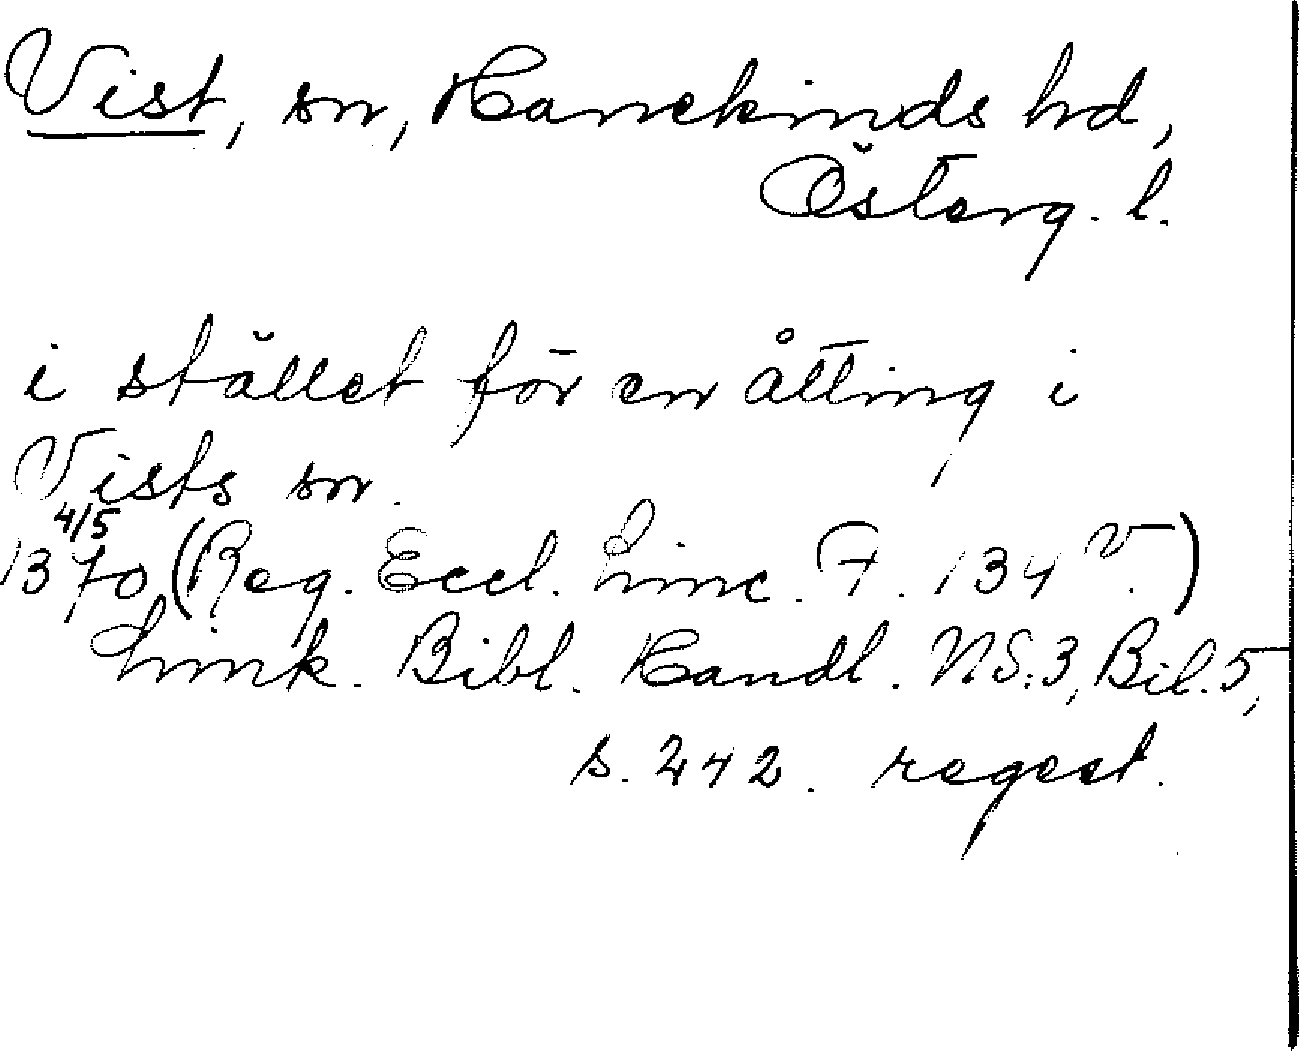 Vist, sn, Hanekinds hd,
Österg. l.
i stället för en åtting i
Vists sn.
4/5
1370 (Reg. Eccl. Linc. F. 134 v.)
Link. Bibl. Handl. NS:3, Bil. 5,
s. 242. regest.